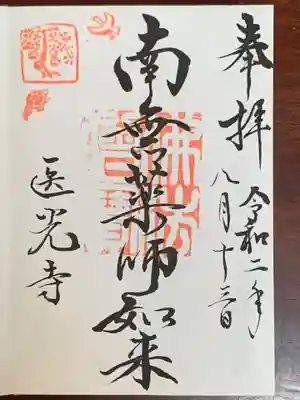 奉拝
令和二年
八月十三日
南無薬師如来
医光寺